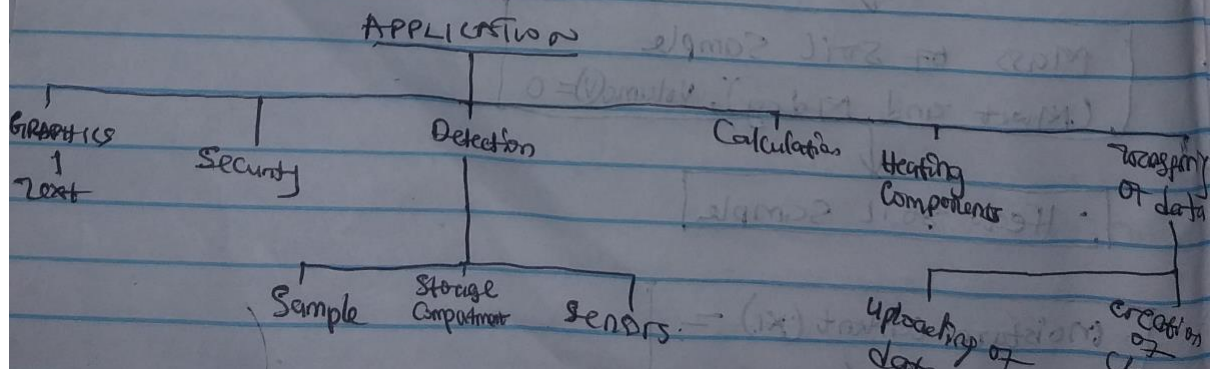 APPLICATION
GRAPHICS
Text
Security
Detection
Calculation
Heating
Components
of data
Sample
Storage
Compartment
Sensors.
Uploading of
creation
of